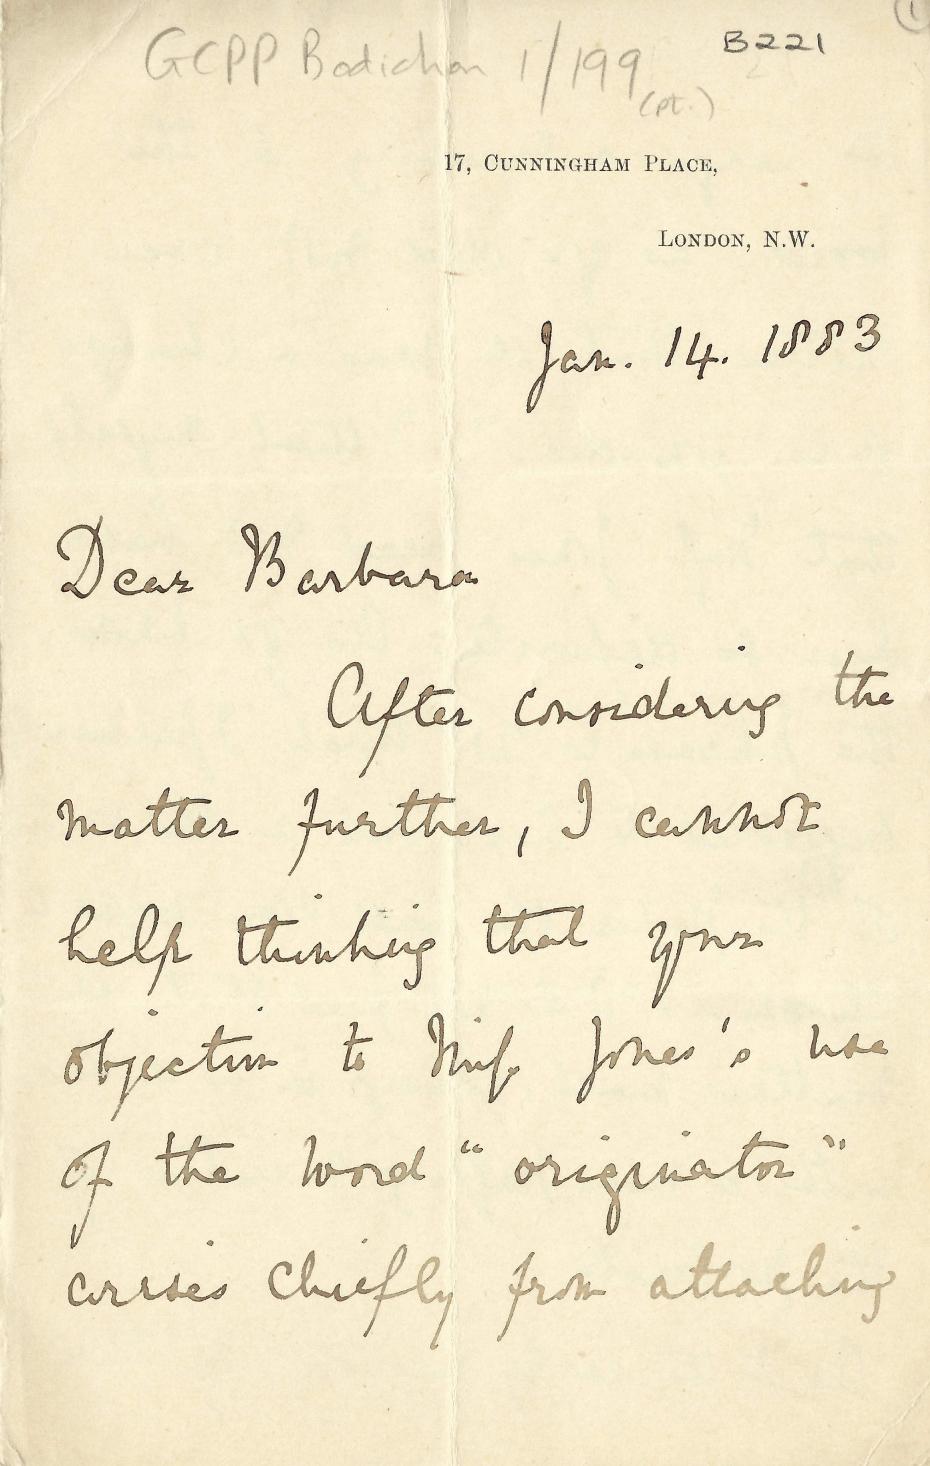 ①
B221
GCPP Bodichon 1/199
(pt.)
17, Cunningham Place,
London, N.W.
Jan. 14. 1883
Dear Barbara
After considering the
matter further, I cannot
help thinking that your
objection to Miss Jones's use
of the word "originator"
arises chiefly from attaching